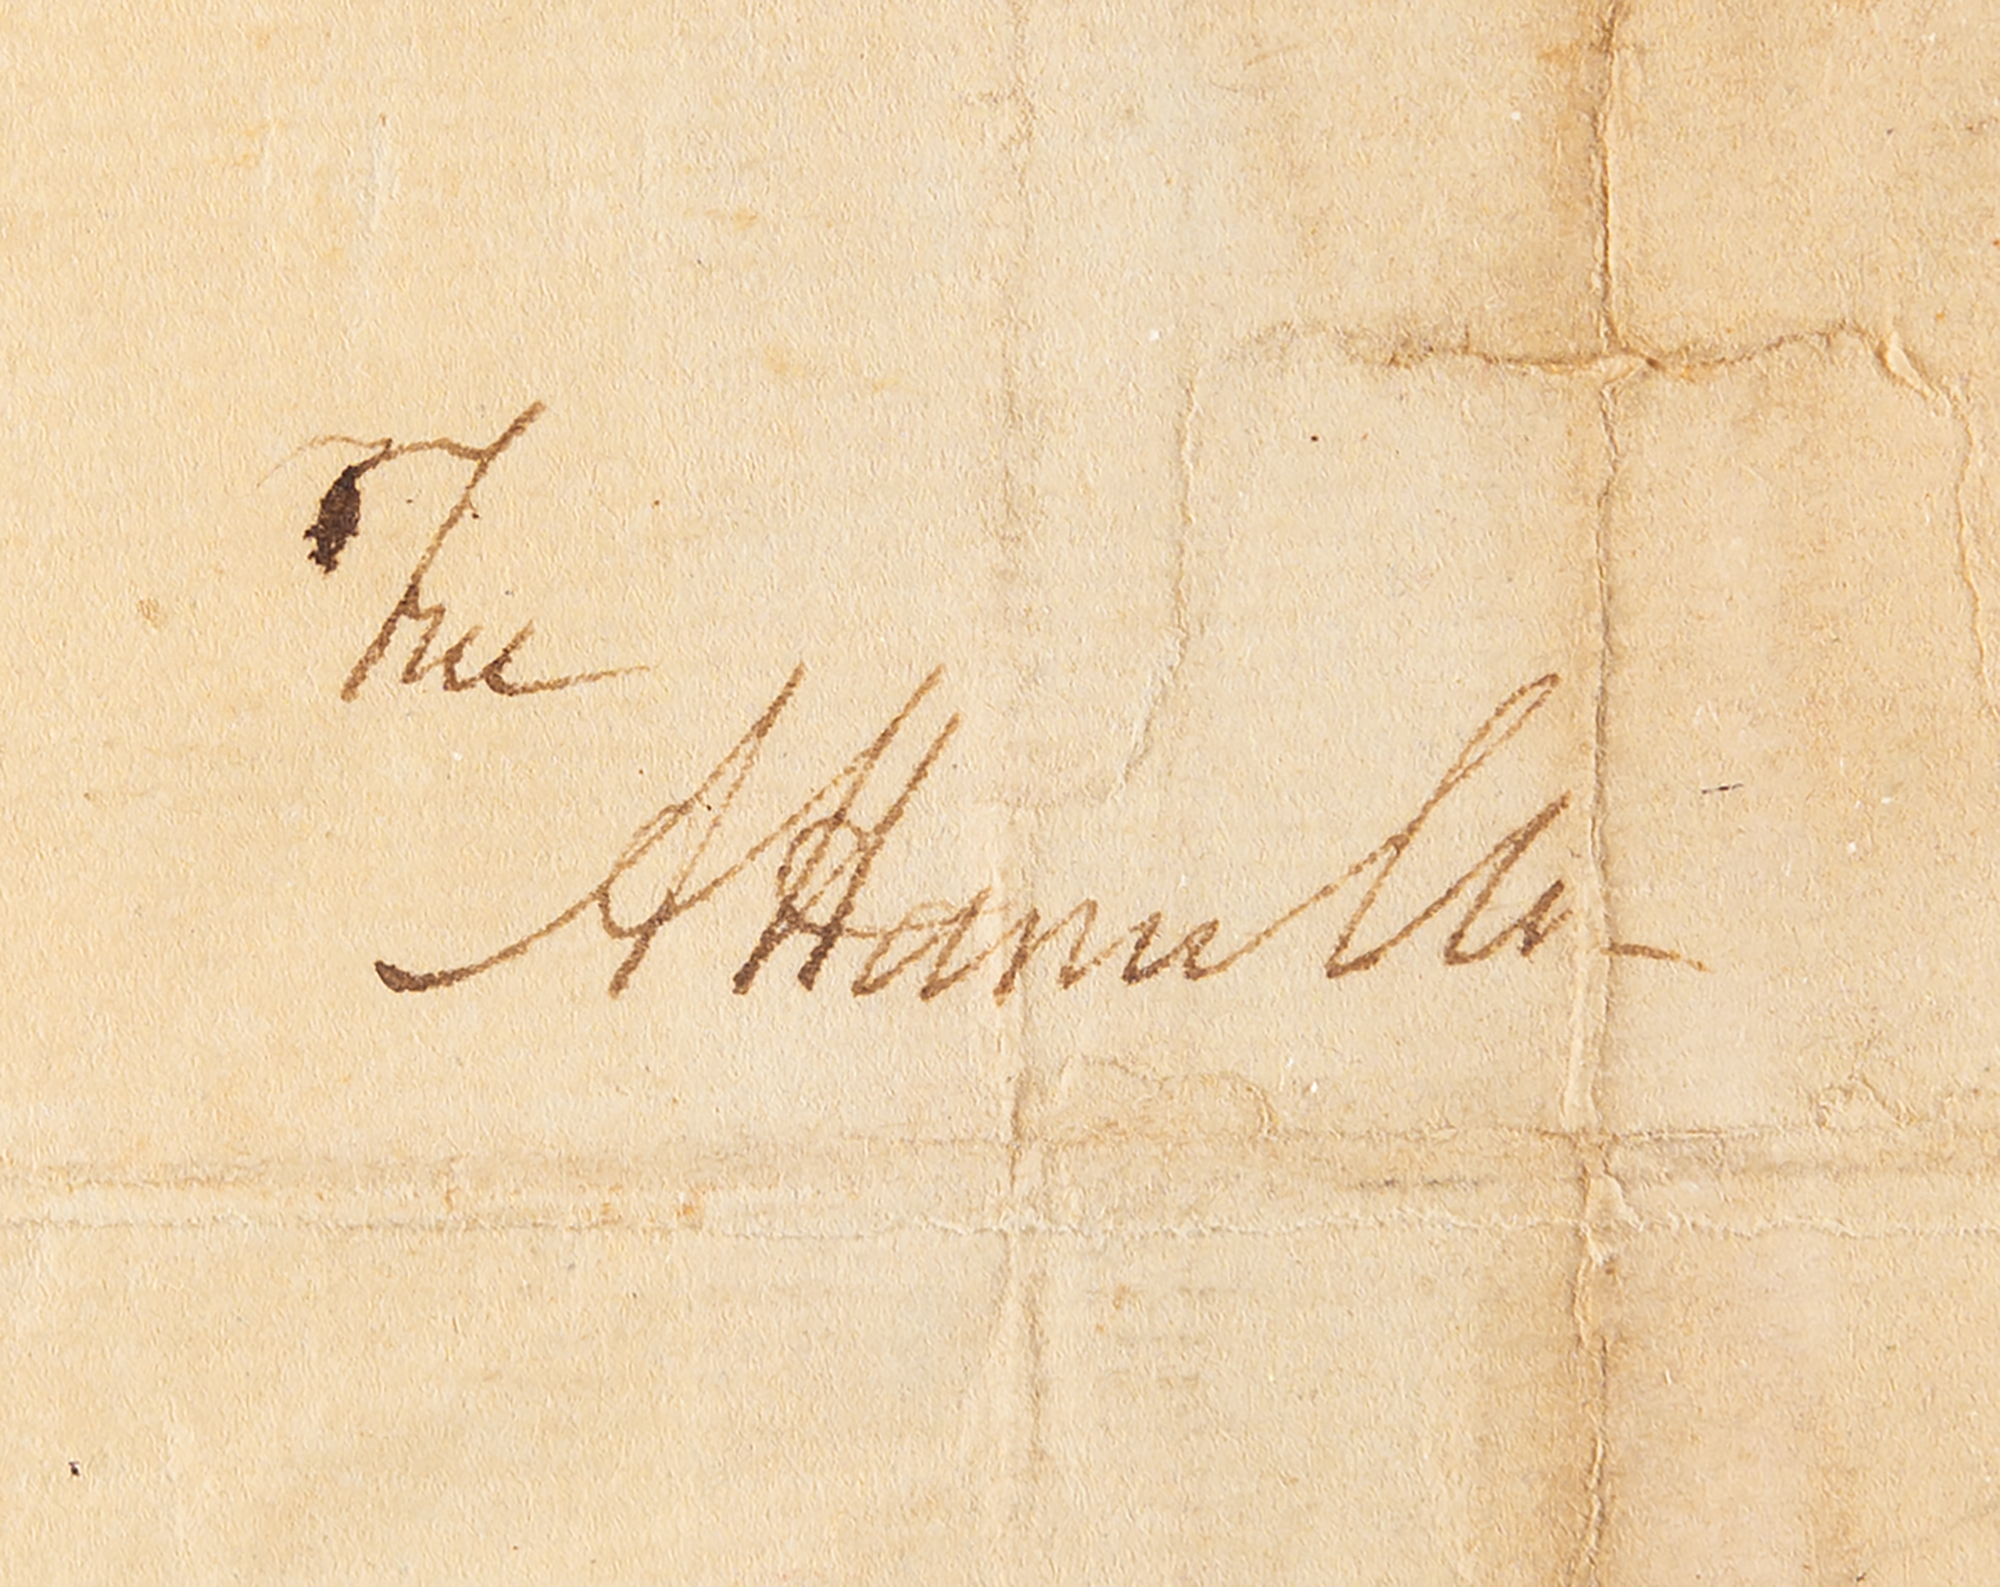 Free
AHamilton